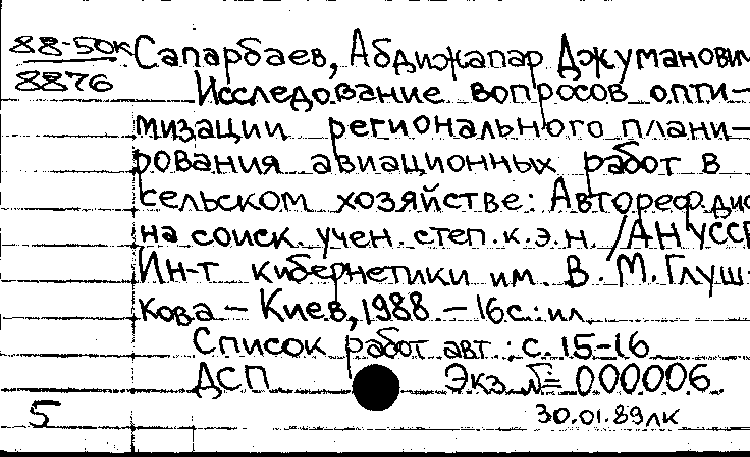 88-50к Сапарбаев, Абдижапар Джуманович
8876 Исследование вопросов опти-
мизации регионального плани-
рования авиационных работ в
сельском хозяйстве: Автореф. дис
на соиск. учен. степ. к.э.н. /АН УССР
Ин-т кибернетики им. В. М. Глуш-
кова - Киев, 1988 - 16с.: ил
Список работ авт.: с. 15-16
ДСП Экз № 000006
5 30.01.89лк